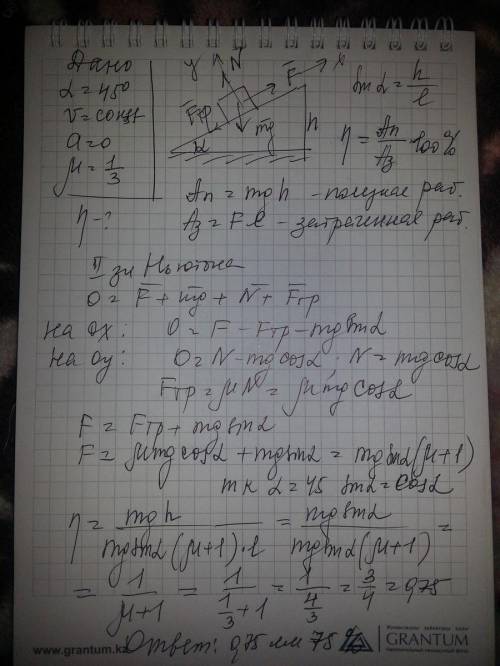 Дано
α = 45°
v = const
a = 0
μ = 1/3
η - ?
y N F x
Fтр mg h
α
sin α = h/l
η = Aп/Aз · 100%
Aп = mgh - полезная раб.
Aз = Fl - затраченная раб.
II зн Ньютона
0 = F + mg + N + Fтр
на ox: 0 = F - Fтр - mg sin α
на oy: 0 = N - mg cos α ; N = mg cos α
Fтр = μN = μmg cos α
F = Fтр + mg sin α
F = μmg cos α + mg sin α = mg sin α (μ+1)
тк α = 45 sin α = cos α
η = mgh / mg sin α (μ+1)·l = mg sin α / mg sin α (μ+1) =
= 1 / μ+1 = 1 / 1/3 + 1 = 1 / 4/3 = 3/4 = 0,75
Ответ: 0,75 или 75 %
www.grantum.kz
GRANTUM